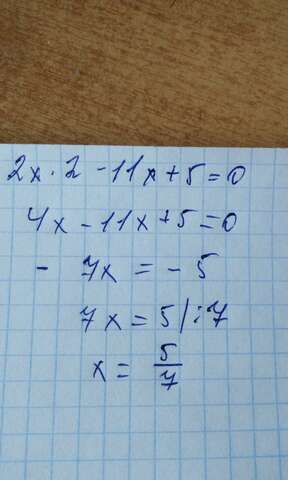 2x · 2 - 11x + 5 = 0
4x - 11x + 5 = 0
- 7x = - 5
7x = 5 | : 7
x = 5/7